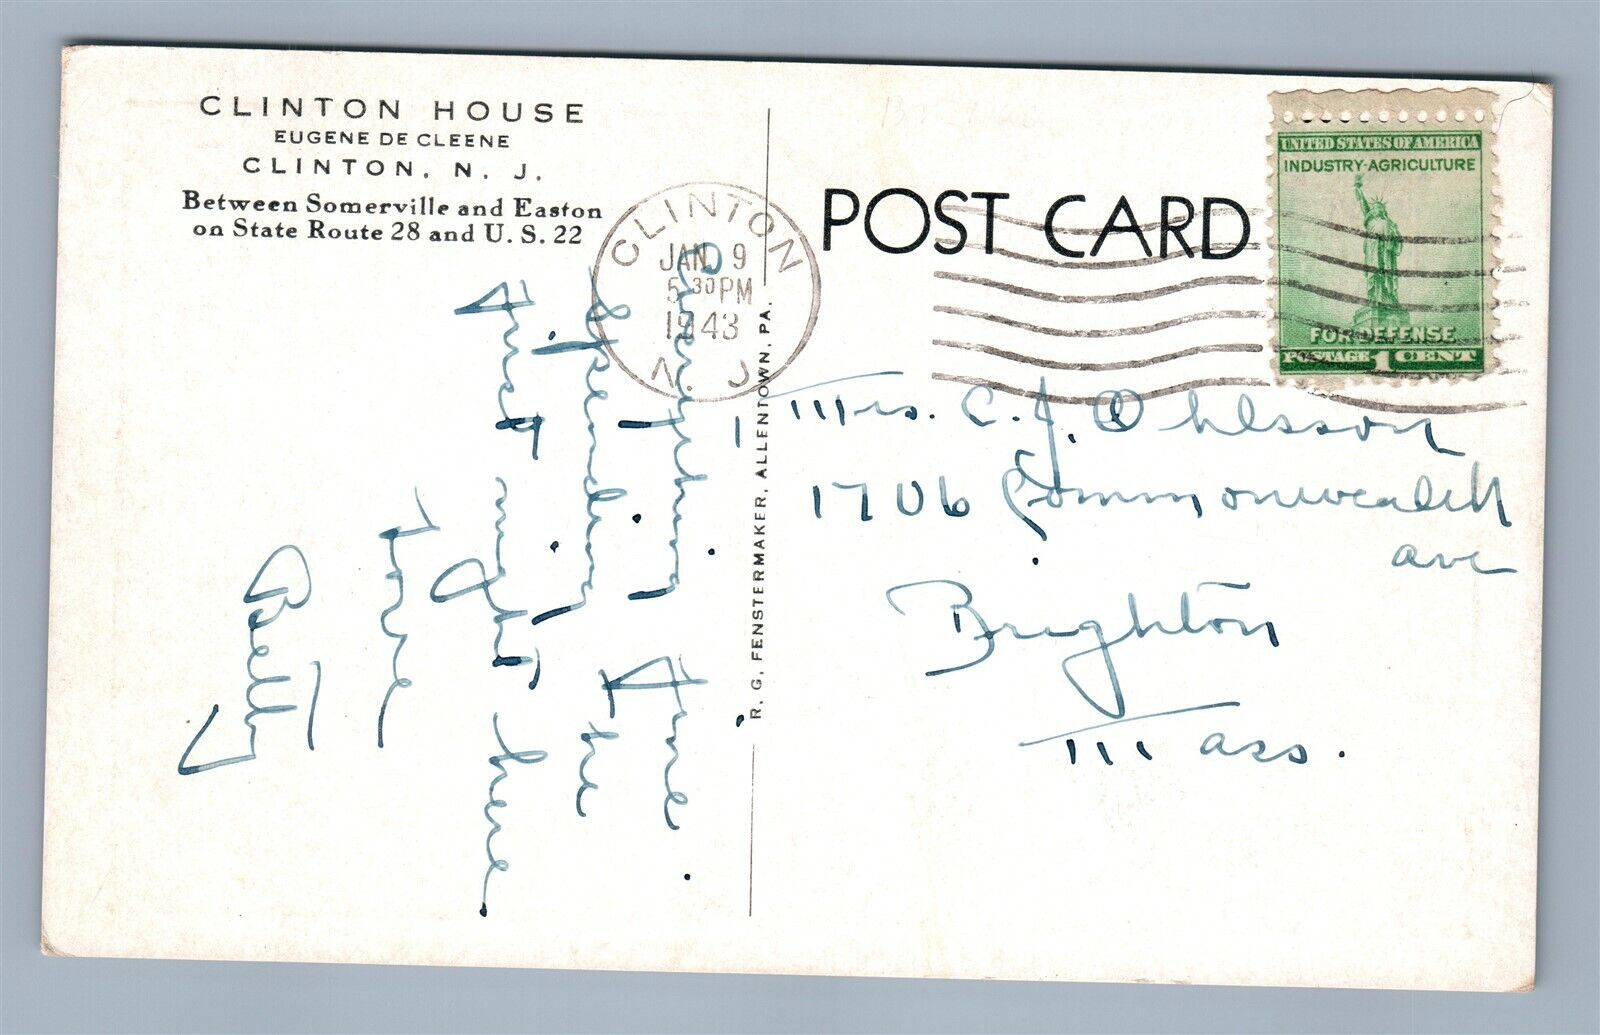 CLINTON HOUSE
EUGENE DE CLEENE
CLINTON, N. J.
Between Somerville and Easton
on State Route 28 and U. S. 22
Everything fine.
Spending the
first night here.
Love
Betty
CLINTON
JAN 9
5 30 PM
1943
N. J.
R. G. FENSTERMAKER, ALLENTOWN, PA.
POST CARD
UNITED STATES OF AMERICA
INDUSTRY-AGRICULTURE
FOR DEFENSE
POSTAGE 1 CENT
Mrs. C. J. Ohlsson
1706 Commonwealth
ave
Brighton
Mass.